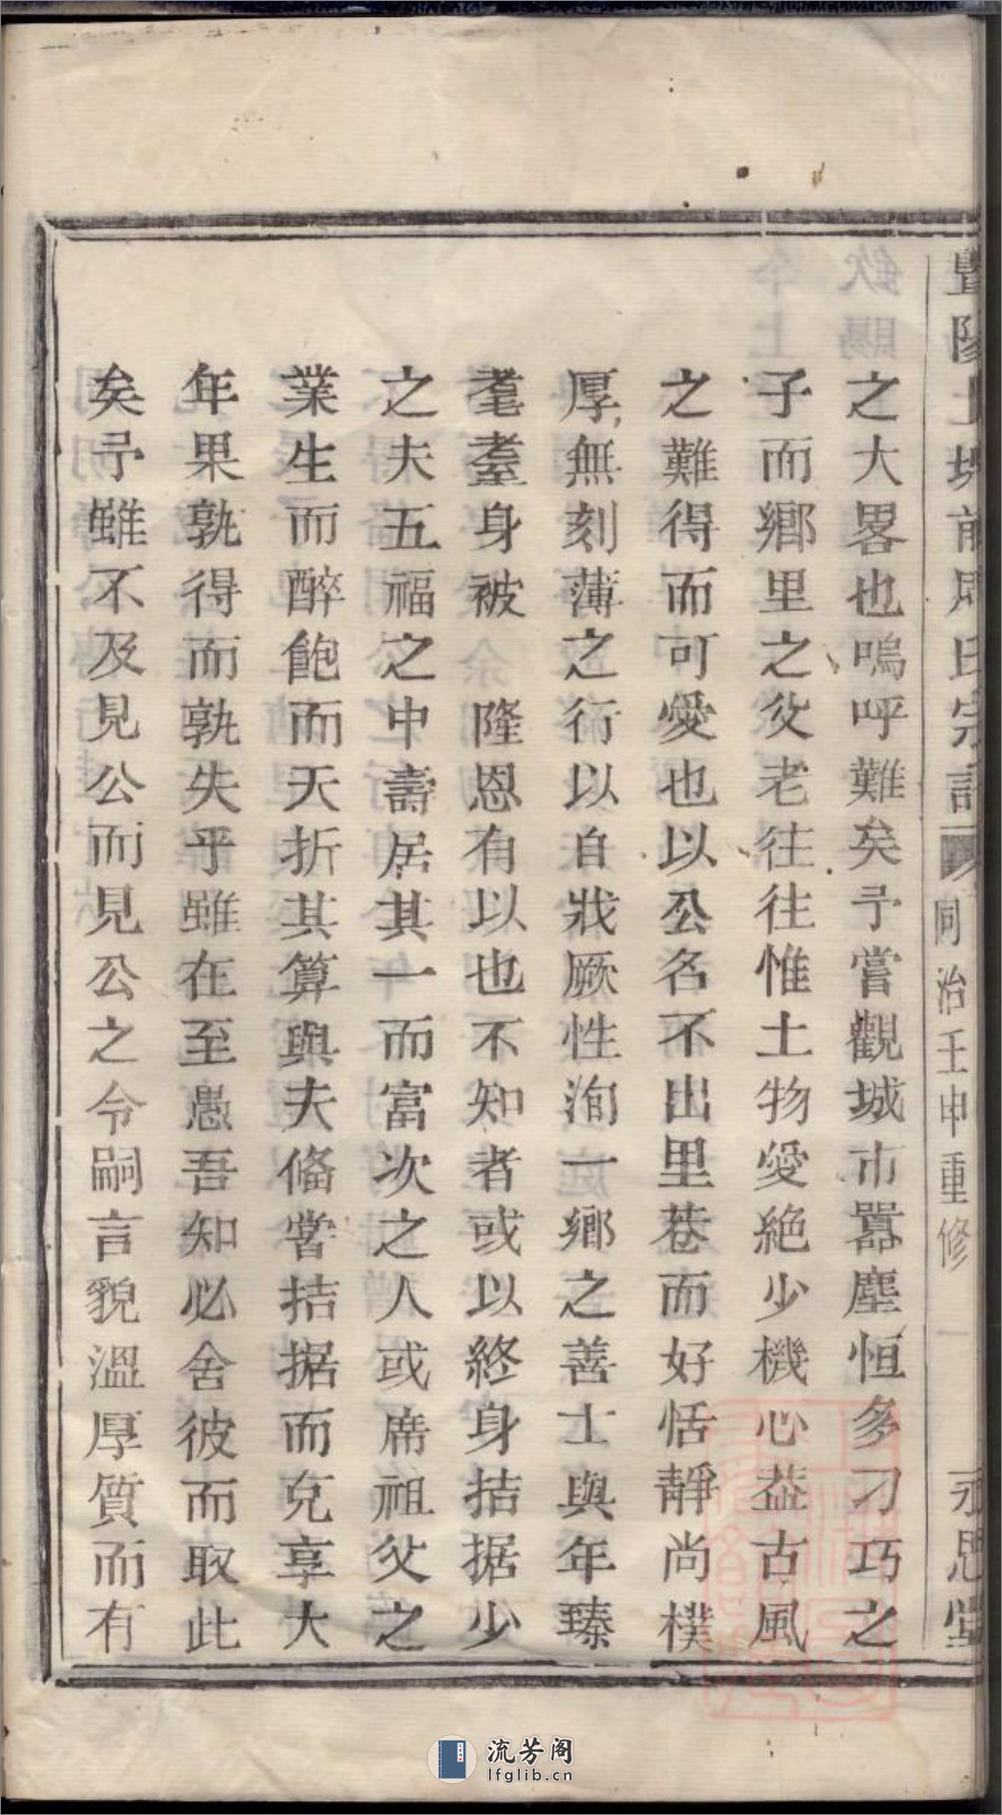 暨陽上墳前周氏宗譜 同治壬申重修 一 永思堂
之大畧也嗚呼難矣予嘗觀城市囂塵恒多刁巧之
子而鄉里之父老往往惟土物愛絕少機心益古風
之難得而可愛也以公名不出里巷而好恬靜尚樸
厚無刻薄之行以自戕厥性洵一鄉之善士與年臻
耄耋身被 隆恩有以也不知者或以終身拮据少
之夫五福之中壽居其一而富次之人或席祖父之
業生而醉飽而天折其算與夫俻嘗拮据而克享大
年果孰得而孰失乎雖在至愚吾知必舍彼而取此
矣予雖不及見公而見公之令嗣言貌溫厚質而有
流芳阁
lfglib.cn